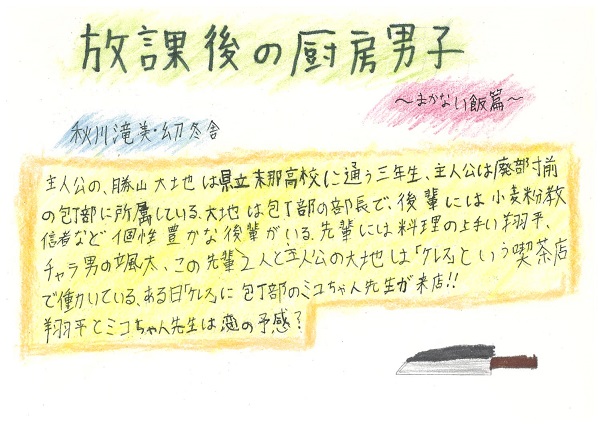 放課後の厨房男子
～まかない飯篇～
秋川滝美・幻冬舎
主人公の、勝山大地は県立末那高校に通う三年生、主人公は廃部寸前
の包丁部に所属している。大地は包丁部の部長で、後輩には小麦粉教
信者など個性豊かな後輩がいる。先輩には料理の上手い翔平、
チャラ男の颯太、この先輩2人と主人公の大地は「ケレス」という喫茶店
で働いている、ある日「ケレス」に包丁部のミコちゃん先生が来店!!
翔平とミコちゃん先生は恋の予感?